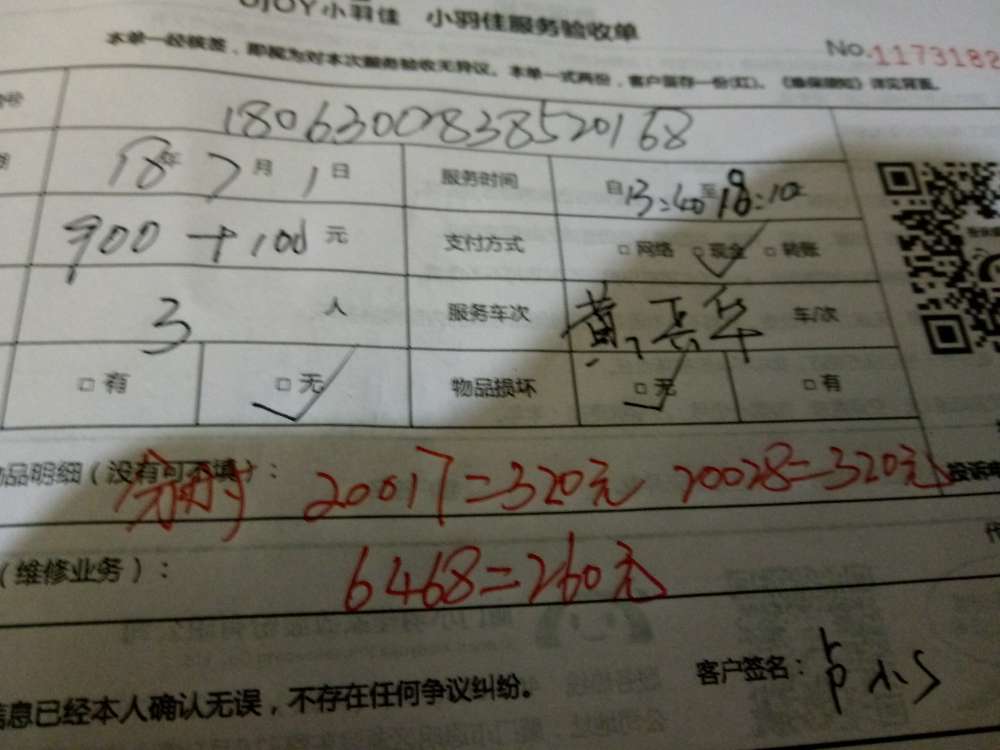 OJOY小羽佳 小羽佳服务验收单
No.1173182
本单一经核签，即视为对本次服务验收无异议。本单一式两份，客户留存一份(红)。《维保须知》详见背面。
号
1806300838520168
期 18年7月1日 服务时间 自13:40至18:10
900+100元 支付方式 □网络 □现金 □转账
3人 服务车次 黄 华 车/次
□有 □无 物品损坏 □无 □有
品明细（没有可不填）： 20017=320元 20028=320元 投诉
（维修业务）： 6468=260元
客户签名：
信息已经本人确认无误，不存在任何争议纠纷。